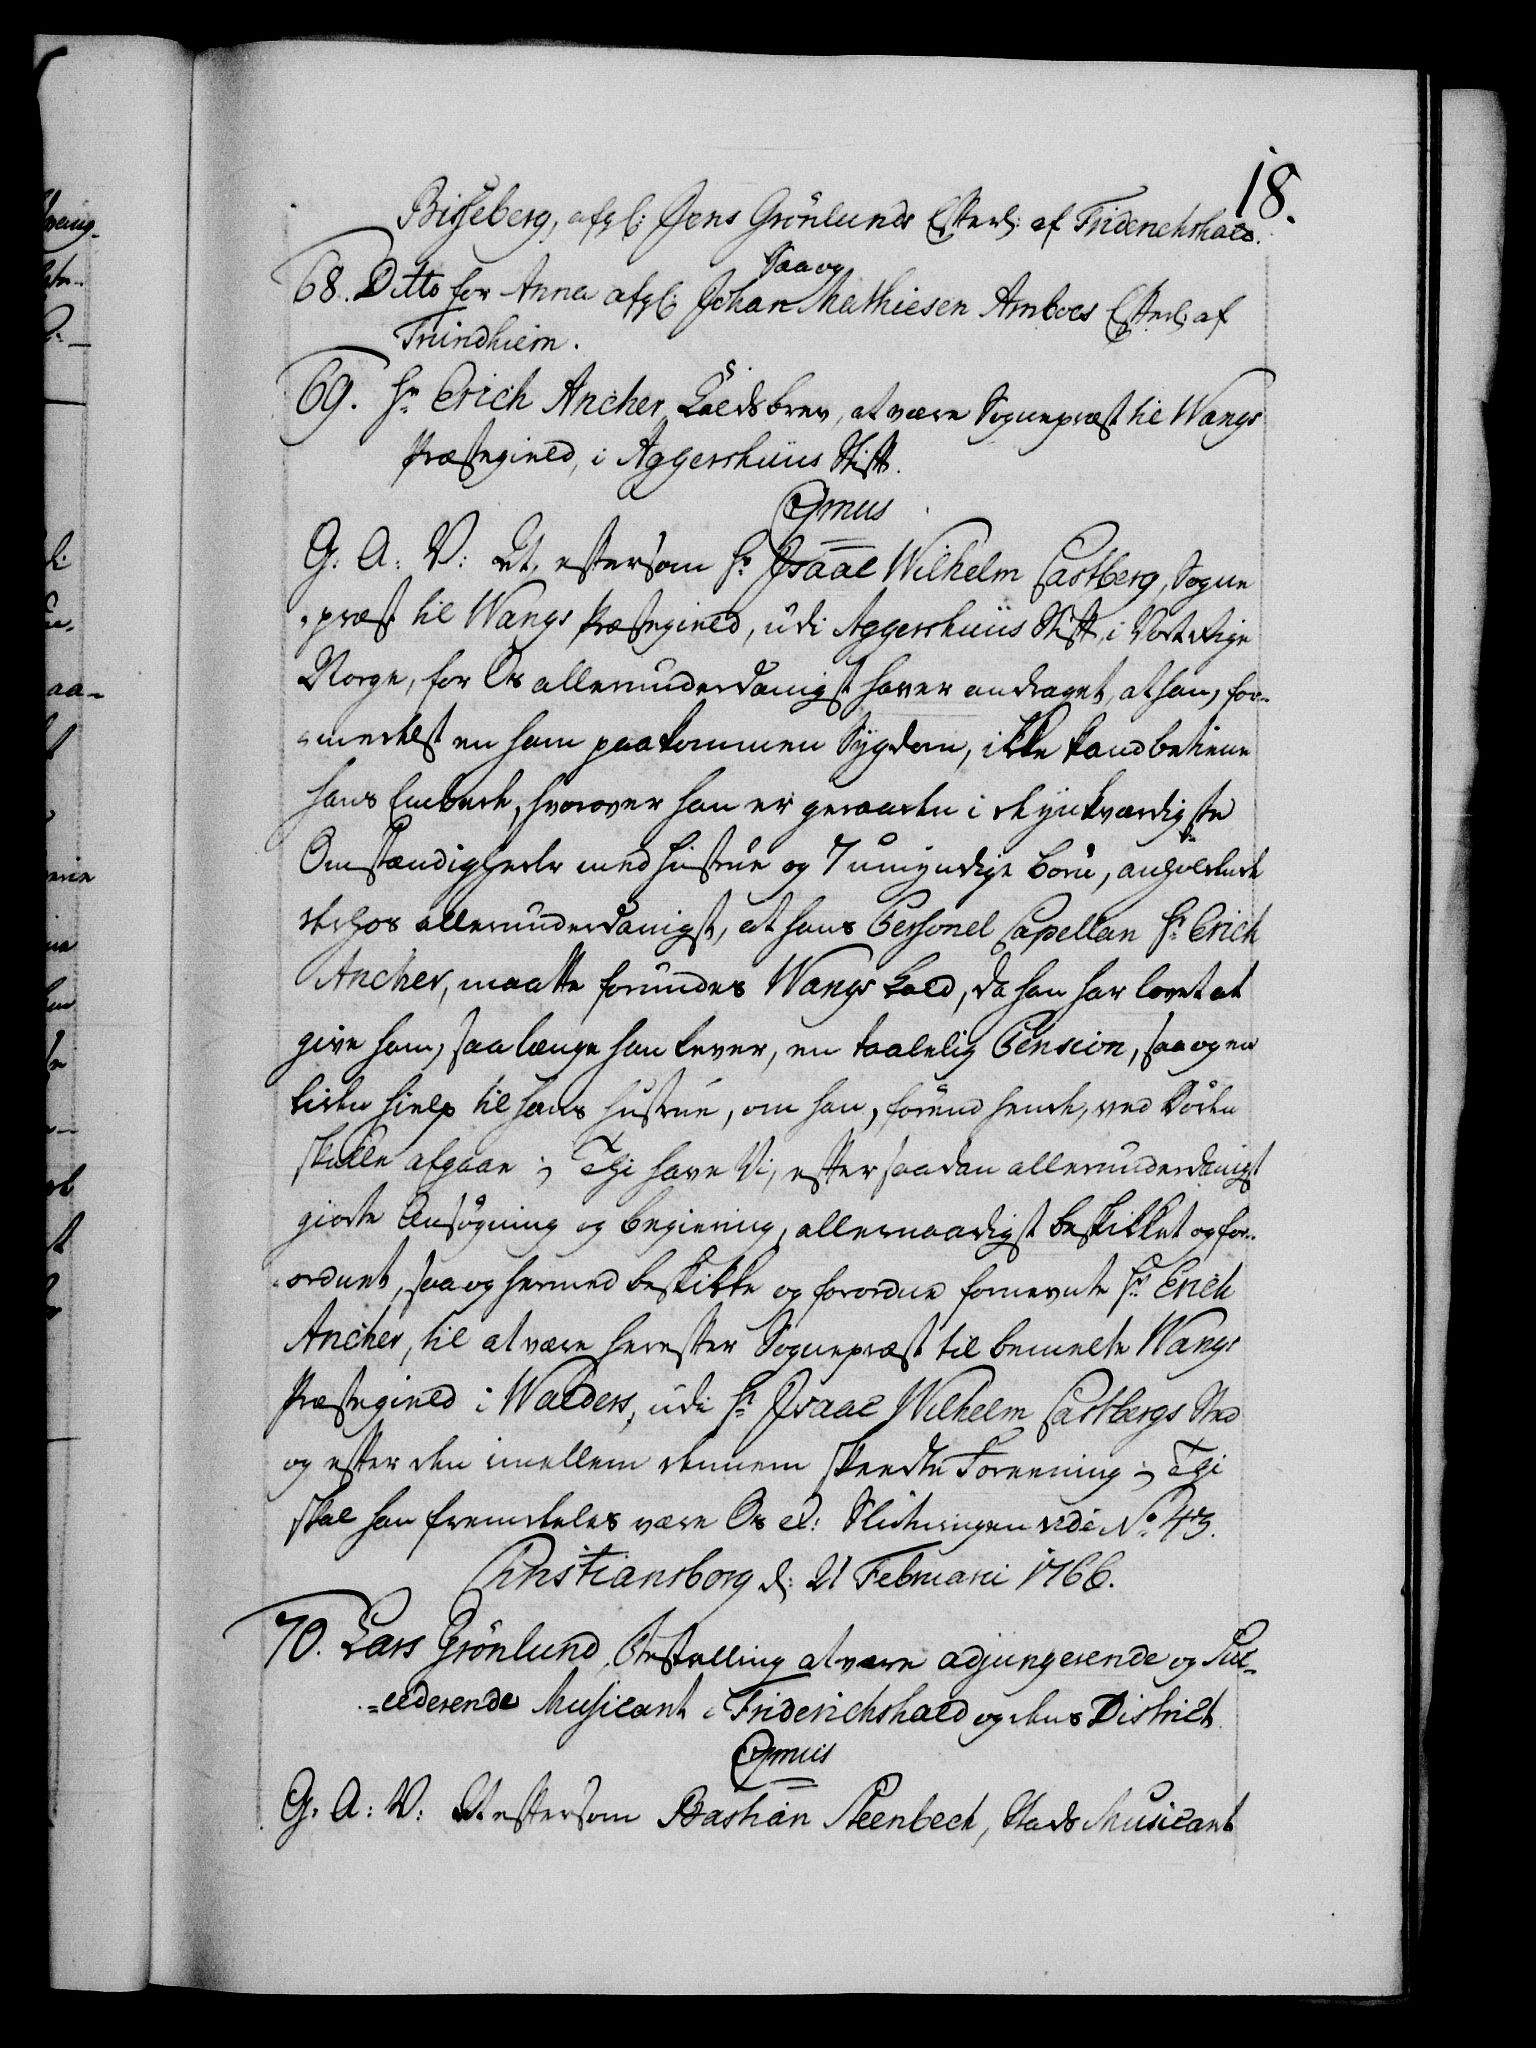 18.
Bisseberg, afgl: Jens Grönlunds Efterl: af Friderichshald.
68. Ditto for Anna afgl: Johan Mathiesen Amboes Efterl: af
Trundhiem.
69. Hr Erich Ancher Kaldsbrev, at være Sognepræst til Wangs
Præstegield, i Aggershuus Stift.
Cgmus
G: A: V: At, eftersom Hr Isaac Wilhelm Castberg, Sogne
-præst til Wangs Præstegield, udi Aggershuus Stift, i Vort Rige
Norge, for Os allerunderdanigst haver andraget, at han, for-
-medelst en ham paakommen Sygdom, ikke kand betiene
hans Embede, hvorover han er geraaden i de ynkværdigste
Omstændigheder med Hustrue og 7 umyndige Börn, anholdende
derhos allerunderdanigst, at hans Personel Capellan Hr Erich
Ancher, maatte forundes Wangs Kald, da han har lovet at
give ham, saa længe han lever, en taalelig Pension, saa og en
liden Hielp til hans Hustrue, om han, forend hende, ved Döden
skulle afgaae; Thi have Vi, efter saadan allerunderdanigst
giorte Ansögning og Begiering, allernaadigst beskikket og for-
-ordnet, saa og hermed beskikke og forordne fornevnte Hr Erich
Ancher, til at være herefter Sognepræst til bemelte Wangs
Præstegield i Walders, udi Hr Isaac Wilhelm Castbergs Sted
og efter den imellem dennem skeedte Foreening; Thi
skal han fremdeles være Os etc: Slutningen vide No 43.
Christiansborg d: 21 Februarii 1766.
70. Lars Grönlund, Bestalling at være adjungerende og Suc-
-cederende Musicant i Friderichshald og dens District.
Cgmus
G: A: V: At eftersom Bastian Steenbech, Stads Musicant